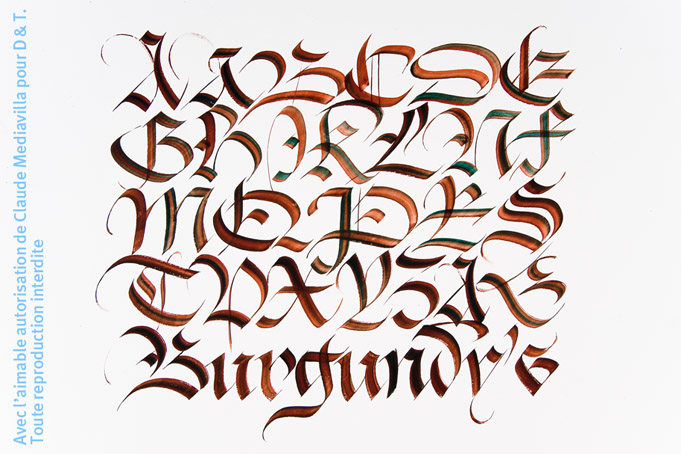 A A B C D E
G H I K L N F
M Q P R S
T V X Y Z A
Burgundy's
Avec l'aimable autorisation de Claude Mediavilla pour D & T.
Toute reproduction interdite